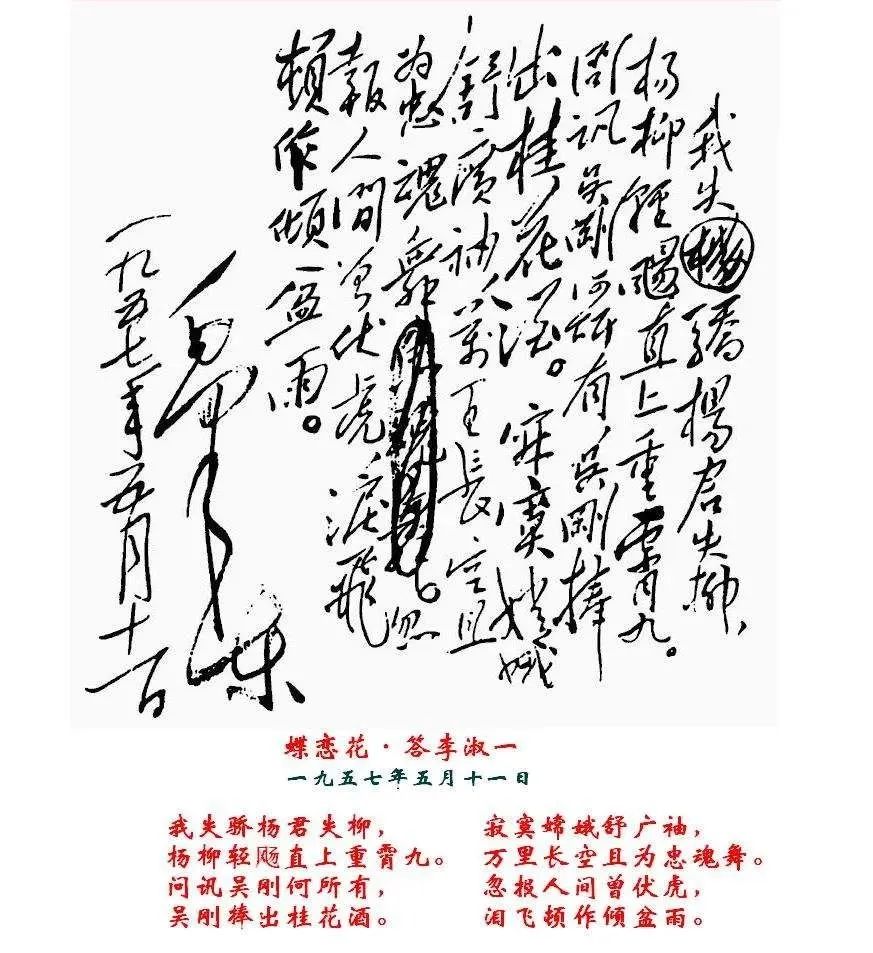 我失驕楊君失柳，
杨柳輕颺直上重霄九。
问讯吴剛何所有，吴剛捧
出桂花酒。寂寞嫦娥
舒廣袖，萬里長空且
为忠魂舞。忽
報人間曾伏虎，淚飛
頓作傾盆雨。
毛泽东
一九五七年五月十一日
蝶恋花·答李淑一
一九五七年五月十一日
我失骄杨君失柳，
杨柳轻飏直上重霄九。
问讯吴刚何所有，
吴刚捧出桂花酒。
寂寞嫦娥舒广袖，
万里长空且为忠魂舞。
忽报人间曾伏虎，
泪飞顿作倾盆雨。